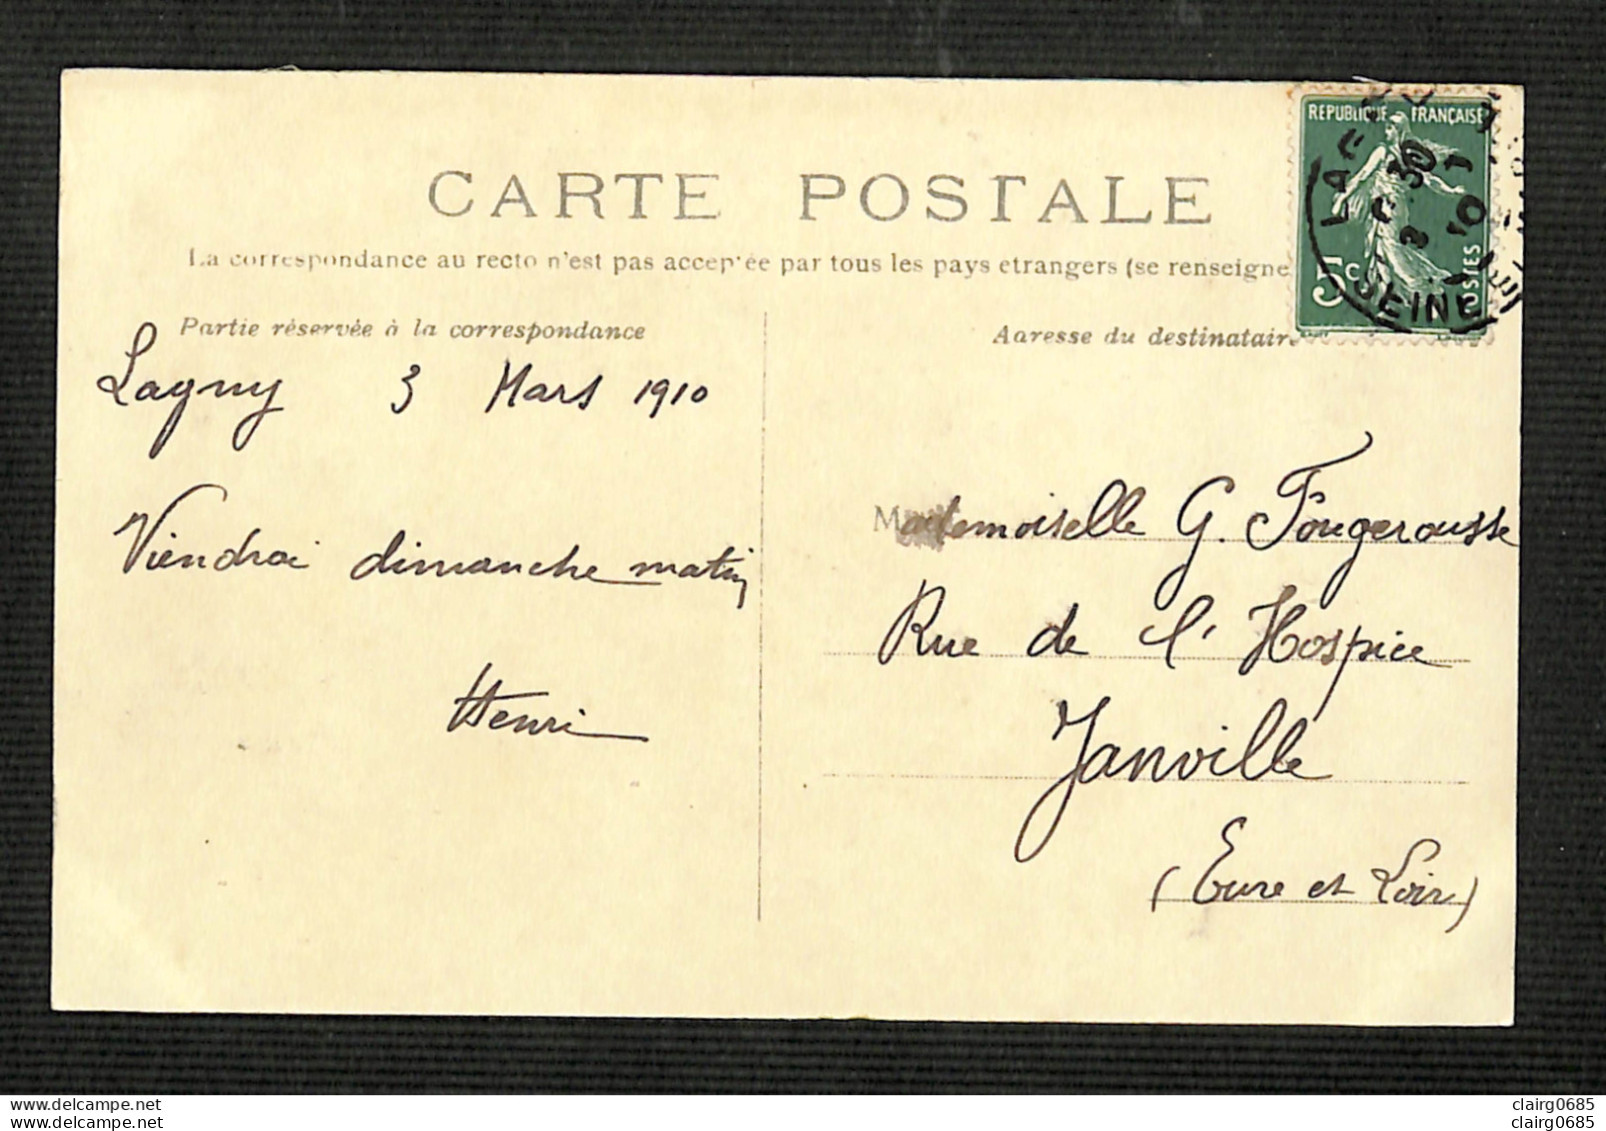 CARTE POSTALE
La correspondance au recto n'est pas acceptée par tous les pays etrangers (se renseigne
Partie réservée à la correspondance
Adresse du destinataire
REPUBLIQUE FRANÇAISE
5c
SEINE
Lagny 3 Mars 1910
Viendrai dimanche matin
Henri
Mademoiselle G. Fougerousse
Rue de l'Hospice
Janville
(Eure et Loir)
www.delcampe.net
www.delcampe.net
clairg0685
clairg0685